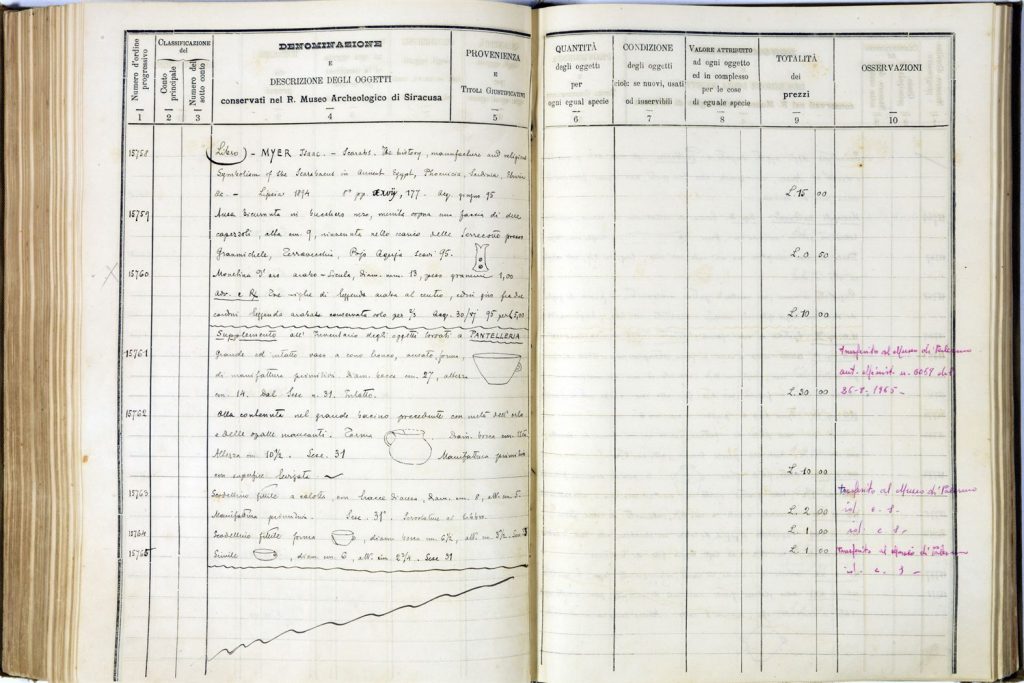 Numero d'ordine
progressivo
1
CLASSIFICAZIONE
del
Conto
principale
2
Numero del
sotto conto
3
DENOMINAZIONE
E
DESCRIZIONE DEGLI OGGETTI
conservati nel R. Museo Archeologico di Siracusa
4
PROVENIENZA
E
TITOLI GIUSTIFICATIVI
5
15758
(Libro) - MYER Isaac. - Scarabs. The history, manufacture and religious
Symbolism of the Scarabaeus in Ancient Egypt, Phoenicia, Sardinia, Etruria
&c. - Lipsia 1894 8° pp. xxvij, 177. Acq. giugno 95
15759
Ansa bicornuta in bucchero nero, munita sopra una faccia di due
capezzoli, alta cm. 9, rinvenuta nello scarico delle Terrecotte presso
Granmichele, Terravecchia, Pojo Aquja scavi 95.
15760
Monetina d'oro arabo-sicula, diam. mm. 13, peso grammi 1,00
adv. e R/ Tre righe di leggenda araba al centro, ed in giro fra due
cordoni leggenda araba conservata solo per 2/3 Acq. 30/VI 95 per £ 5,00
Supplemento all'Inventario degli oggetti trovati a PANTELLERIA
15761
Grande ed intatto vaso a cono tronco, ansato, forma,
di manifattura primitiva. diam. bocca cm. 27, altezza
cm. 14. Dal Sese n. 31. Intatto.
15762
Olla contenuta nel grande bacino precedente con metà dell'orlo
e delle spalle mancanti. Forma , Diam. bocca cm.
Altezza cm. 10½. Sese. 31 Manifattura primitiva
con superfice levigata
15763
Scodellino fittile a calotta, con tracce d'ansa, diam. cm. 8, alt. cm. 5.
Manifattura primitiva. Sese. 31
15764
Scodellino fittile forma , diam. bocca cm. 6½, alt. cm. 3½. Sese 31
15765
Simile , diam. cm. 6, alt. cm 2¾. Sese 31
QUANTITÀ
degli oggetti
per
ogni egual specie
6
CONDIZIONE
degli oggetti
cioè: se nuovi, usati
od inservibili
7
VALORE ATTRIBUITO
ad ogni oggetto
ed in complesso
per le cose
di eguale specie
8
TOTALITÀ
dei
prezzi
9
OSSERVAZIONI
10
L. 15 00
L. 0 50
L. 10 00
L. 30 00
L. 10 00
L. 2 00
L. 1 00
L. 1 00
trasferito al Museo di Palermo
aut. Minist. n. 6057 del
26-8-1965-
trasferito al Museo di Palermo
id. c. s.
id. c. s.
trasferito al Museo di Palermo
id. c. s.